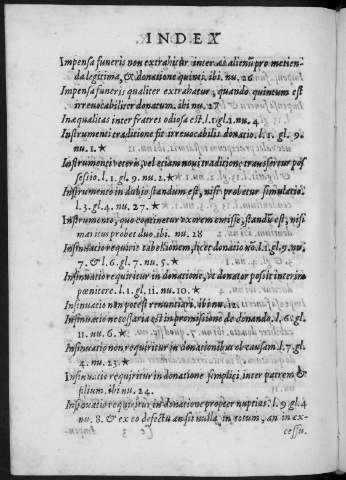 INDEX
Impensa funeris non extrahitur inter æs alienũ pro metien-
da legitima, & donatione quinti. ibi. nu. 26
Impensa funeris qualiter extrahatur, quando quintum est
irrevocabiliter donatum. ibi nu. 27
Inæqualitas inter fratres odiosa est. l. 1. gl. 1. nu. 4
Instrumenti traditione fit irrevocabilis donatio. l. 1. gl. 9.
nu. 1. ★
Instrumenti veteris, vel etiam novi traditione, transfertur pos
sessio. l. 1. gl. 9. nu. 2. ★
Instrumento in dubio standum est, nisi probetur simulatio.
l. 3. gl. 4. nu. 27. ★
Instrumento, quo continetur uxorem emisse, standũ est, nisi
maritus probet duo. ibi. nu. 28
Insinuatio requirit tabellionem, licet donatio nõ. l. 1. gl. 9. nu.
7. & l. 6. gl. 7. nu. 5. ★
Insinuatio requiritur in donatione, ut donator possit interim
pœnitere. l. 1. gl. 11. nu. 10. ★
Insinuatio non potest renuntiari. ibi nu. 12.
Insinuatio necessaria est in promissione de donando. l. 6. gl.
11. nu. 6. ★
Insinuatio non requiritur in donationibus ob causam. l. 7. gl.
4. nu. 23. ★
Insinuatio requiritur in donatione simplici inter patrem &
filium. ibi nu. 24.
Insinuatio requiritur in donatione propter nuptias. l. 9. gl. 4
nu. 8. & ex eo defectu an sit nulla in totum, an in ex-
cessu.